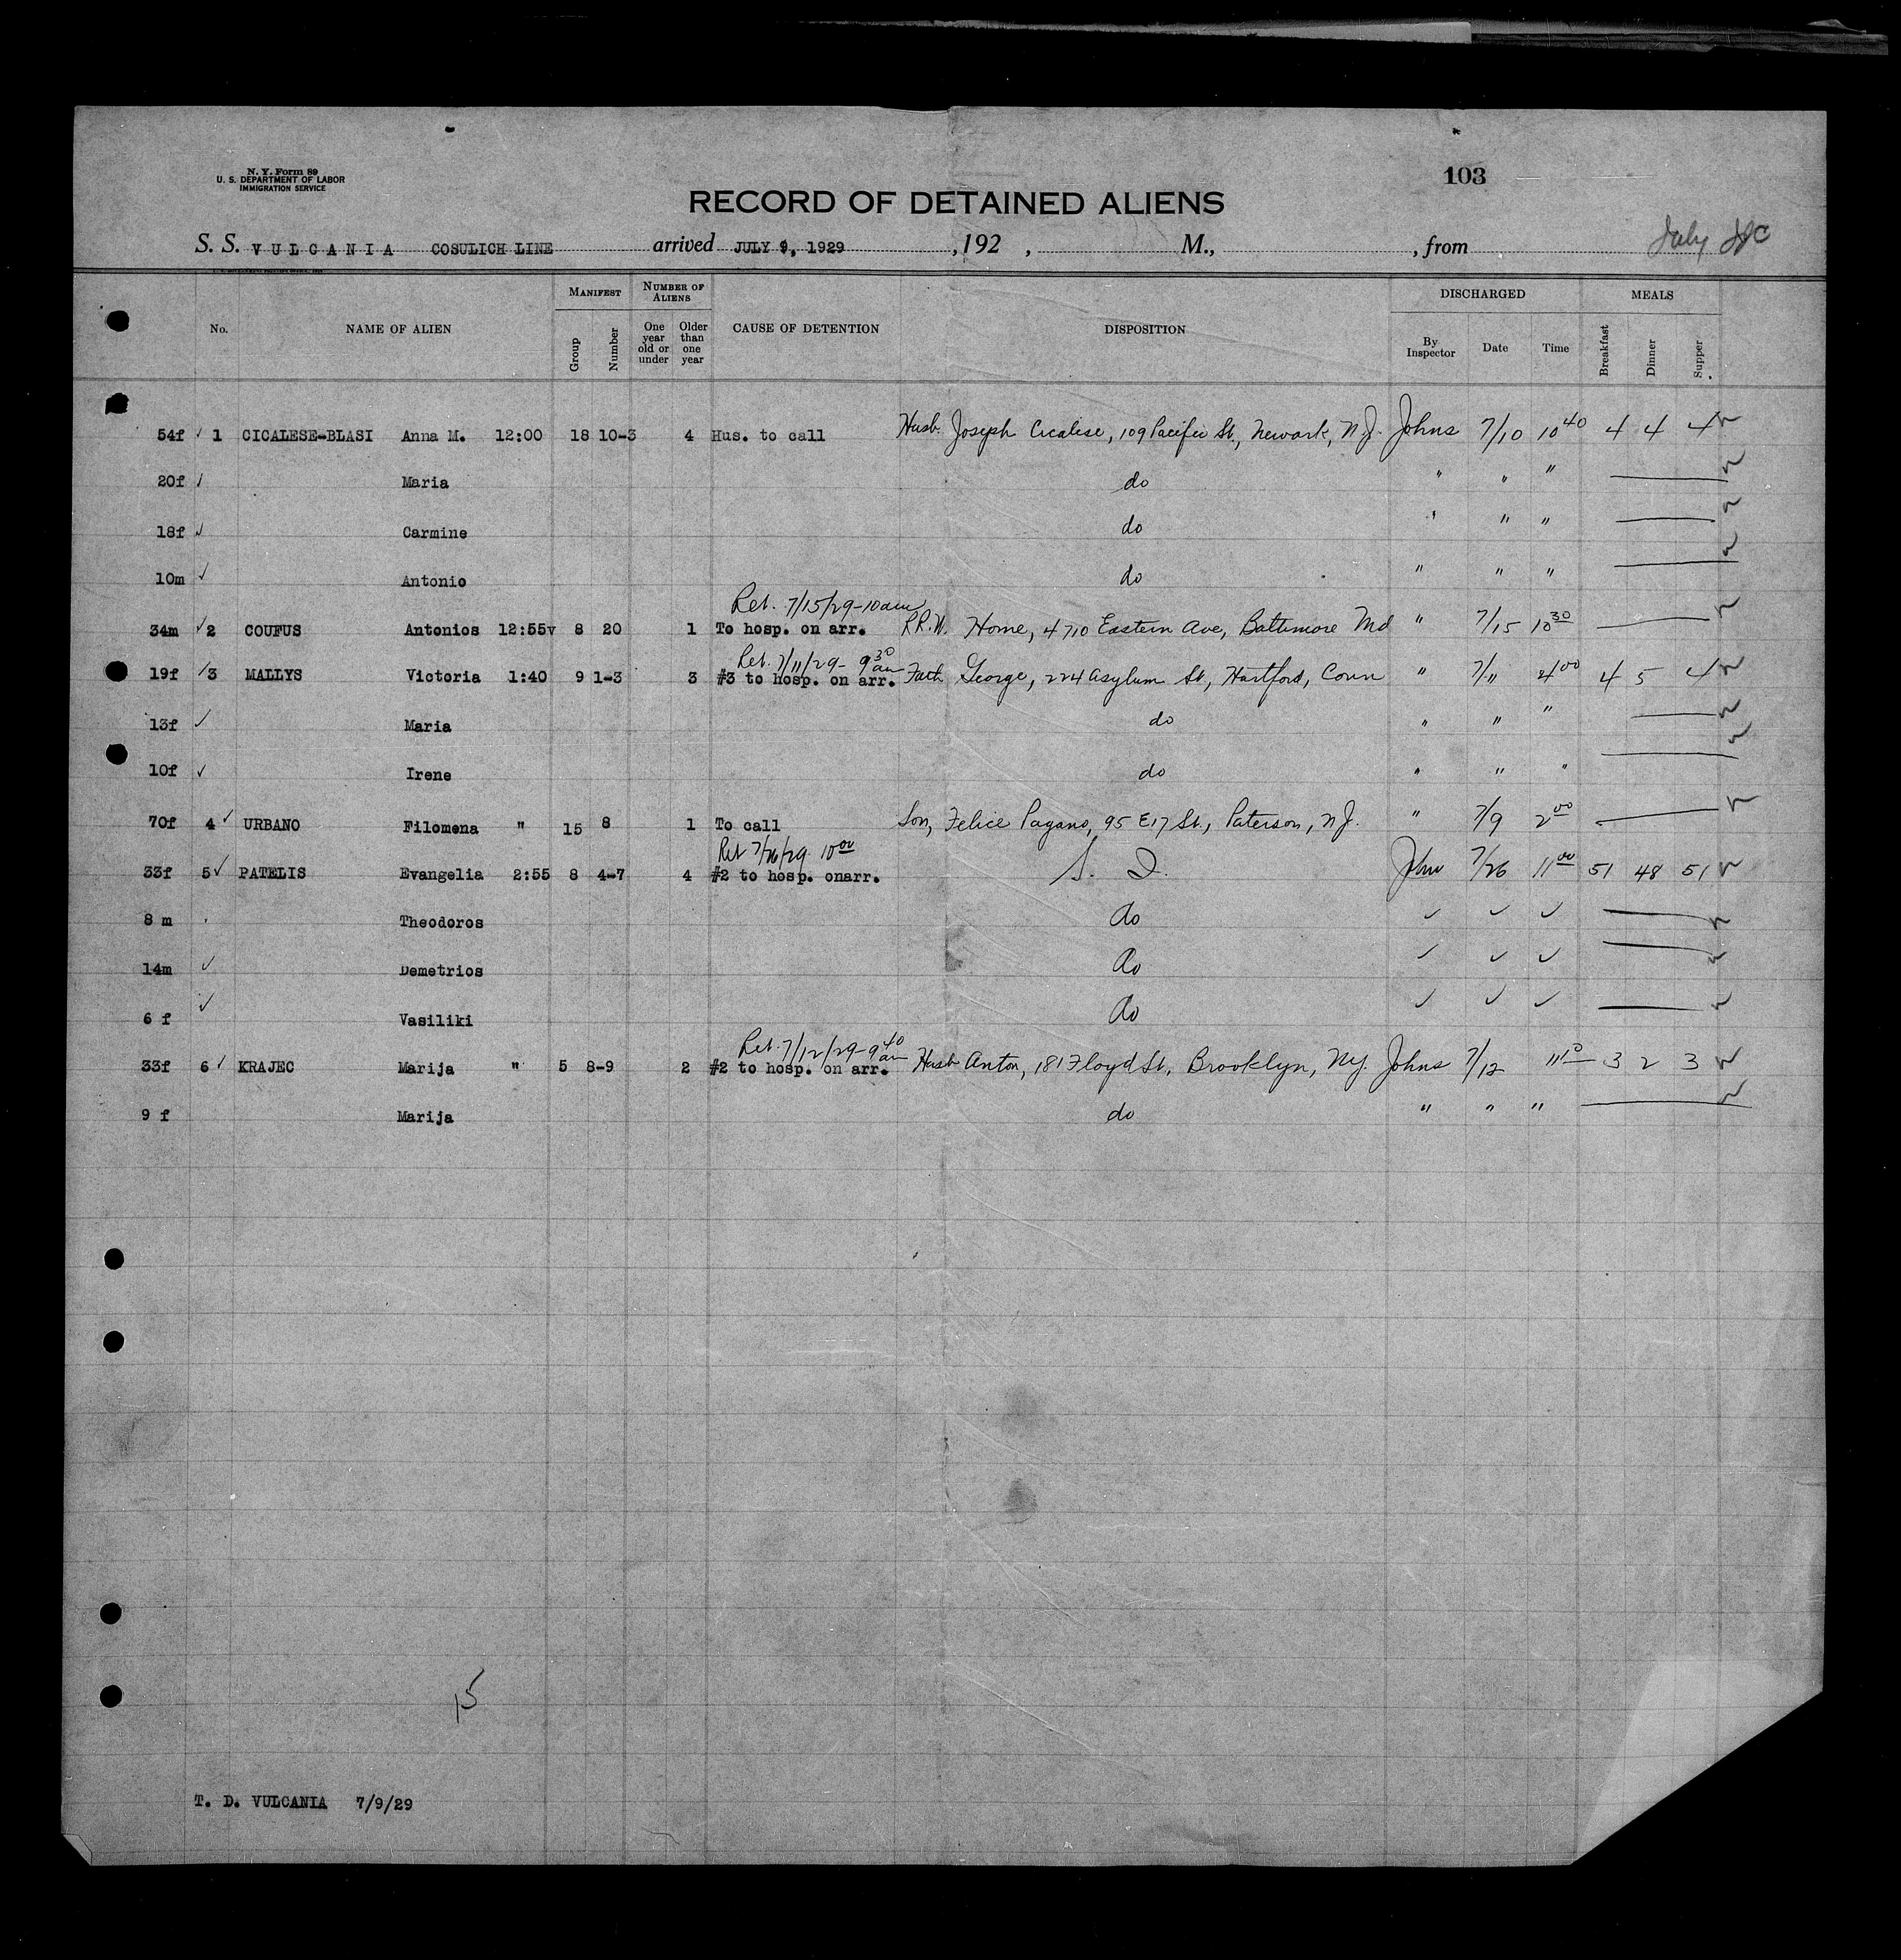 N. Y. Form 89
U. S. DEPARTMENT OF LABOR
IMMIGRATION SERVICE
103
RECORD OF DETAINED ALIENS
S. S. VULCANIA COSULICH LINE arrived JULY 9, 1929, 192 , M., , from July
No. NAME OF ALIEN MANIFEST Group Number NUMBER OF ALIENS One year old or under Older than one year CAUSE OF DETENTION DISPOSITION DISCHARGED By Inspector Date Time MEALS Breakfast Dinner Supper
54f ✓ 1 CICALESE-BLASI Anna M. 12:00 18 10-3 4 Hus. to call Husb. Joseph Cicalese, 109 Pacific St., Newark, N.J. Johns 7/10 10 40 4 4 4
20f ✓ Maria do " " "
18f ✓ Carmine do " " "
10m ✓ Antonio do " " "
Ret. 7/15/29-10am
34m ✓ 2 COUFUS Antonios 12:55v 8 20 1 To hosp. on arr. R.R.W. Home, 4710 Eastern Ave, Baltimore Md " 7/15 10 30
Ret. 7/11/29- 9 30 am
19f ✓ 3 MALLYS Victoria 1:40 9 1-3 3 #3 to hosp. on arr. Fath. George, 224 Asylum St, Hartford, Conn " 7/11 4 00 4 5 4
13f ✓ Maria do " " "
10f ✓ Irene do " " "
70f 4 ✓ URBANO Filomena " 15 8 1 To call Son, Felice Pagano, 95 E17 St., Paterson, N.J. " 7/9 2 00
Ret 7/26/29 10 00
33f 5 ✓ PATELIS Evangelia 2:55 8 4-7 4 #2 to hosp. onarr. S. I. John 7/26 11 00 51 48 51
8 m Theodoros do ✓ ✓ ✓
14m ✓ Demetrios do ✓ ✓ ✓
6 f ✓ Vasiliki do ✓ ✓ ✓
Ret. 7/12/29-9 40 am
33f 6 ✓ KRAJEC Marija " 5 8-9 2 #2 to hosp. on arr. Husb Anton, 181 Floyd St., Brooklyn, NY. Johns 7/12 3 2 3
9 f Marija do " " "
15
T. D. VULCANIA 7/9/29